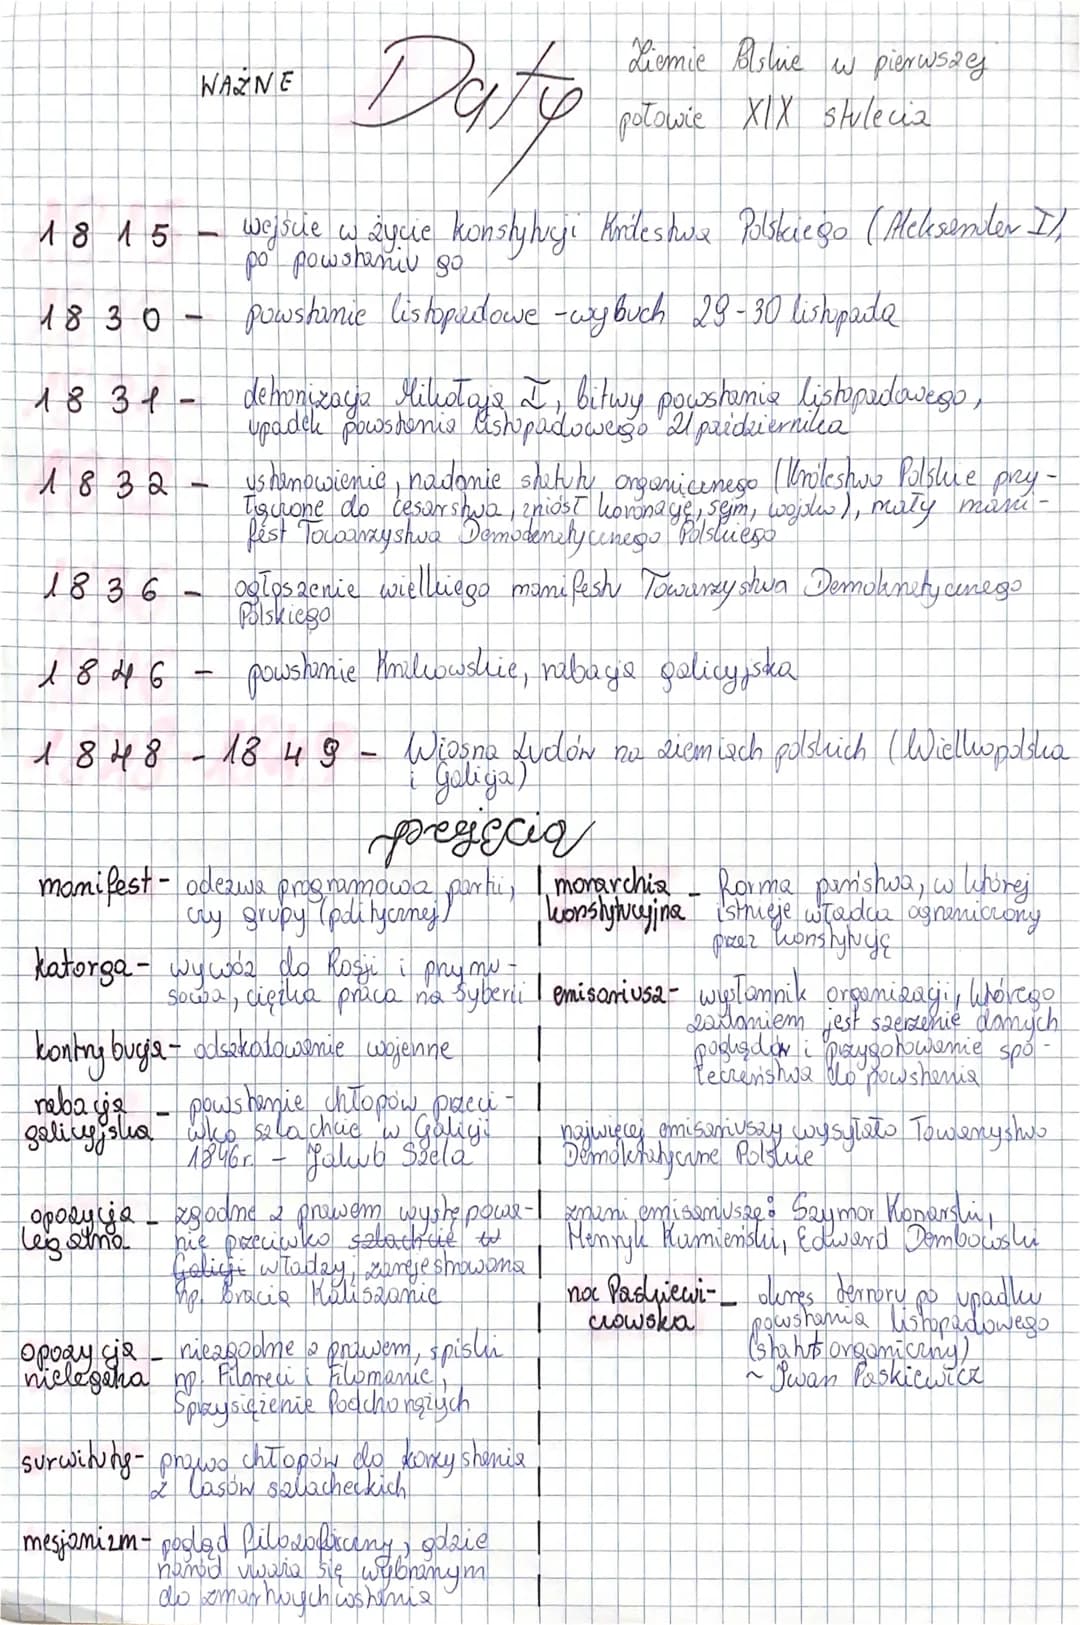 WAŻNE Daty Ziemie Polskie w pierwszej
połowie XIX stulecia
1815 - wejście w życie konstytucji Królestwa Polskiego (Aleksander I),
po powstaniu go
1830 - powstanie listopadowe - wybuch 29-30 listopada
1831 - detronizacja Mikołaja I, bitwy powstania listopadowego,
upadek powstania listopadowego 21 października
1832 - ustanowienie, nadanie statutu organicznego (Królestwo Polskie przy-
łączone do cesarstwa, zniósł koronację, sejm, wojsko), mały mani-
fest Towarzystwa Demokratycznego Polskiego
1836 - ogłoszenie wielkiego manifestu Towarzystwa Demokratycznego
Polskiego
1846 - powstanie Krakowskie, rabacja galicyjska
1848 - 1849 - Wiosna Ludów na ziemiach polskich (Wielkopolska
i Galicja)
pojęcia
manifest - odezwa programowa partii,
czy grupy (politycznej)
katorga - wywóz do Rosji i przymu-
sowa, ciężka praca na Syberii
kontrybucja - odszkodowanie wojenne
rabacja - powstanie chłopów przeci-
galicyjska wko szlachcie w Galicji
1846r. - Jakub Szela
opozycja - zgodne z prawem występowa-
legalna nie przeciwko szlachcie w
Galicji władzy, zarejestrowana
np. bracia Kaliszanie
opozycja - niezgodne z prawem, spiski
nielegalna np. Filareci i Filomacie,
Sprzysiężenie Podchorążych
surwituty - prawo chłopów do korzystania
z lasów szlacheckich
mesjanizm - pogląd filozoficzny, gdzie
naród uważa się wybranym
do zmartwychwstania
monarchia - Forma państwa, w której
konstytucyjna istnieje władca ograniczony
przez konstytucję
emisariusz - wysłannik organizacji, którego
zadaniem jest szerzenie danych
poglądów i przygotowanie spo-
łeczeństwa do powstania
najwięcej emisariuszy wysyłało Towarzystwo
Demokratyczne Polskie
znani emisariusze: Szymon Konarski,
Henryk Kamieński, Edward Dembowski
noc Paskiewi- - okres terroru po upadku
czowska powstania listopadowego
(statut organiczny)
~ Iwan Paskiewicz